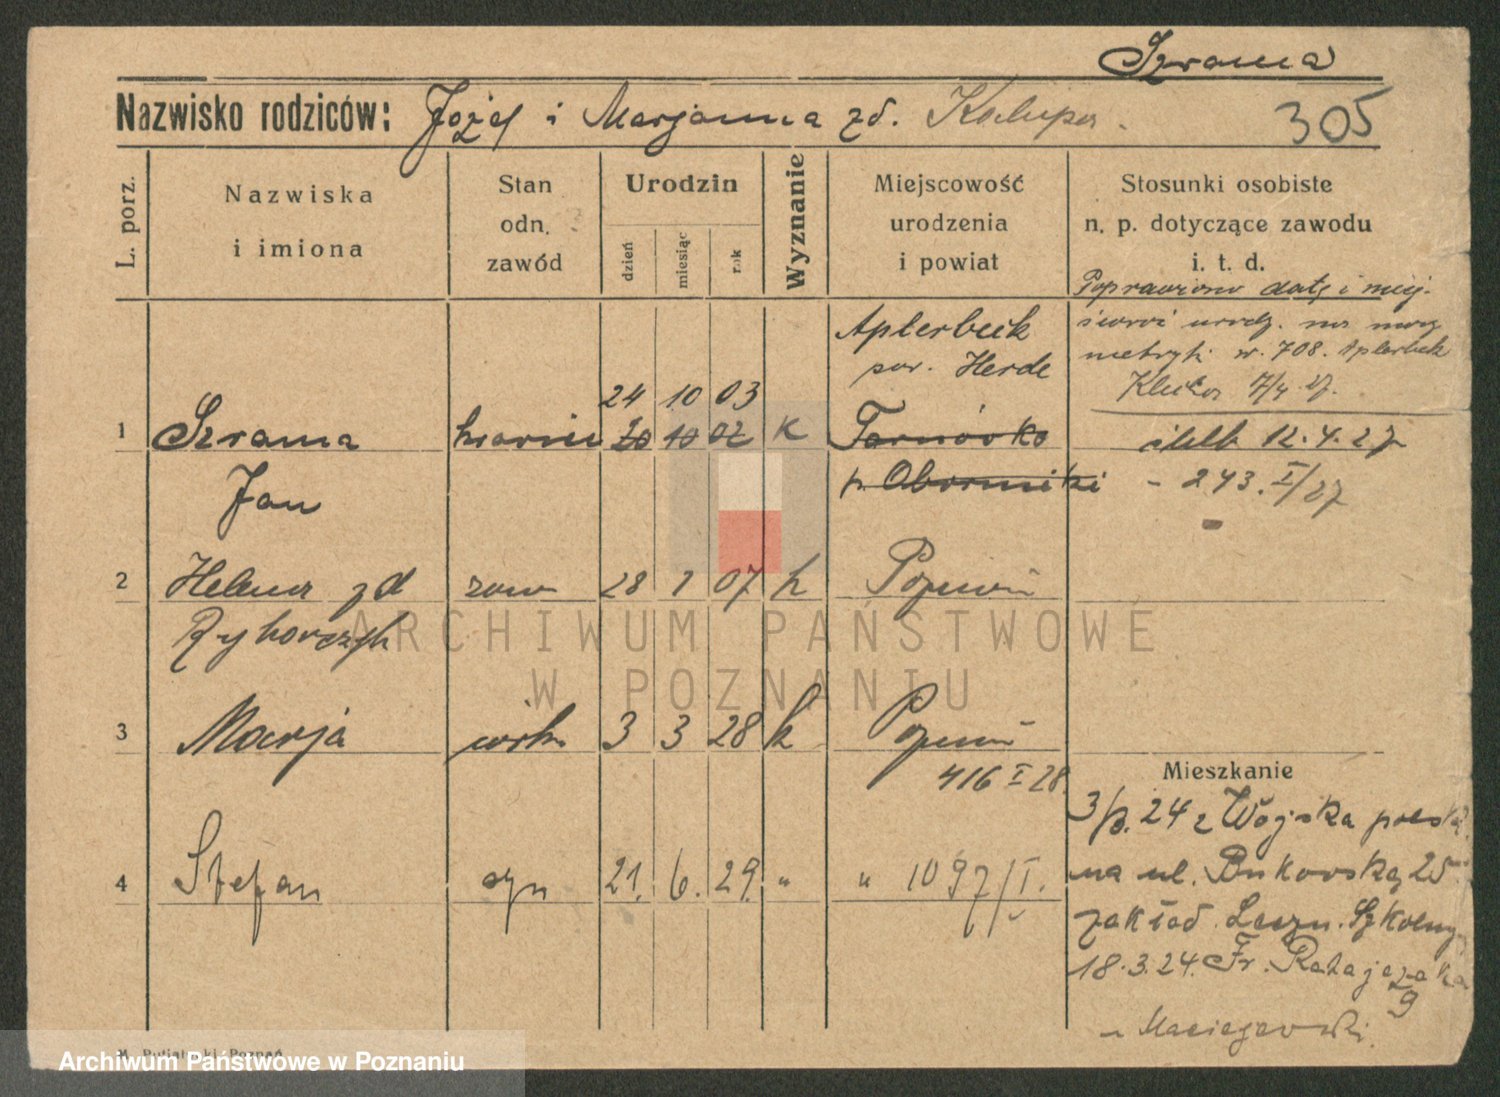 Szrama
Nazwisko rodziców: Józef i Marjanna zd. Kałupa
305
L. porz.
Nazwiska
i imiona
Stan
odn.
zawód
Urodzin
dzień
miesiąc
rok
Wyznanie
Miejscowość
urodzenia
i powiat
Stosunki osobiste
n. p. dotyczące zawodu
i. t. d.
Poprawiono datę i miej-
scowość urodz. na mocy
metryki nr. 708. Aplerbeck
7/4 27.
Aplerbeck
pow. Herde
24 10 03
1 Szrama 20 10 02 k Tarnówko
Jan
p. Oborniki
ślub 12.4.27
- 243. I/27
2 Helena zd 28 1 07 k Poznań
Rychorczyk
3 Marja 3 3 28 k Poznań
416 I 28.
4 Stefan syn 21. 6. 29. " " 1097/I.
Mieszkanie
3/3. 24 z Wojska polsk.
na ul. Bukowską 25
zakład. Leczn. Szkolny
18.3.24. Fr. Ratajczaka
9
u Maciejewski.
ARCHIWUM PAŃSTWOWE
W POZNANIU
Archiwum Państwowe w Poznaniu